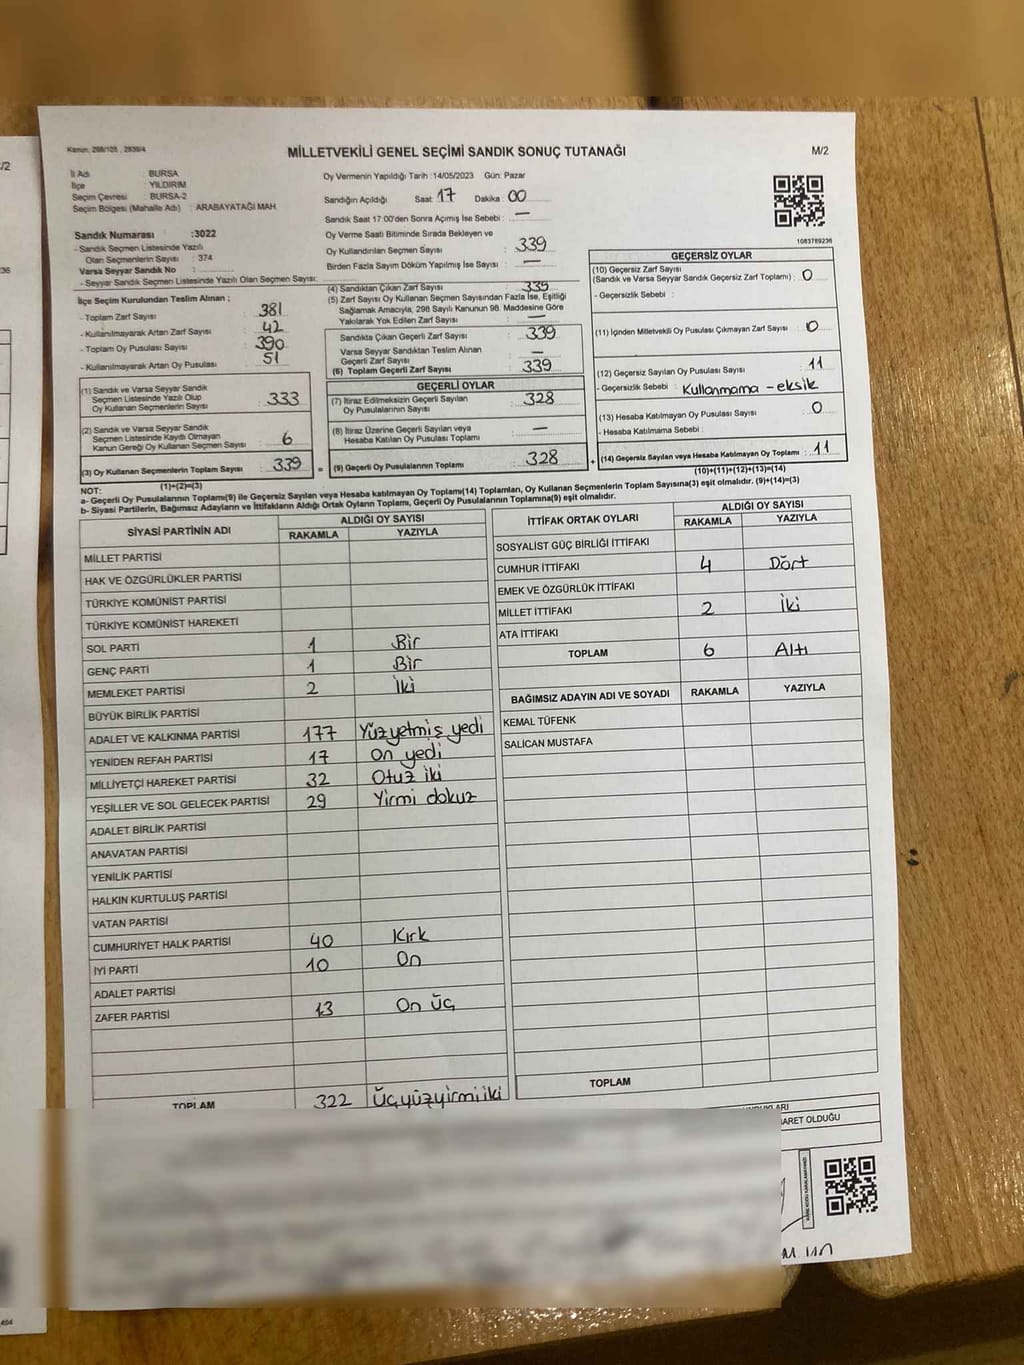 /2
Kanun, 298/105 , 2839/4
MİLLETVEKİLİ GENEL SEÇİMİ SANDIK SONUÇ TUTANAĞI
M/2
İl Adı : BURSA
İlçe : YILDIRIM
Seçim Çevresi : BURSA-2
Seçim Bölgesi (Mahalle Adı) : ARABAYATAĞI MAH.
Oy Vermenin Yapıldığı Tarih :14/05/2023 Gün: Pazar
Sandığın Açıldığı Saat :17 Dakika :00
Sandık Saat 17:00'den Sonra Açımış İse Sebebi : —
Oy Verme Saati Bitiminde Sırada Bekleyen ve
Oy Kullandırılan Seçmen Sayısı : 339
Birden Fazla Sayım Döküm Yapılmış İse Sayısı : —
1083789236
Sandık Numarası :3022
- Sandık Seçmen Listesinde Yazılı
Olan Seçmenlerin Sayısı : 374
Varsa Seyyar Sandık No :
- Seyyar Sandık Seçmen Listesinde Yazılı Olan Seçmen Sayısı:
İlçe Seçim Kurulundan Teslim Alınan ;
- Toplam Zarf Sayısı : 381
- Kullanılmayarak Artan Zarf Sayısı : 42
- Toplam Oy Pusulası Sayısı : 390
- Kullanılmayarak Artan Oy Pusulası : 51
(1) Sandık ve Varsa Seyyar Sandık
Seçmen Listesinde Yazılı Olup
Oy Kullanan Seçmenlerin Sayısı : 333
(2) Sandık ve Varsa Seyyar Sandık
Seçmen Listesinde Kayıtlı Olmayan
Kanun Gereği Oy Kullanan Seçmen Sayısı : 6
(3) Oy Kullanan Seçmenlerin Toplam Sayısı : 339
(1)+(2)=(3)
(4) Sandıktan Çıkan Zarf Sayısı : 339
(5) Zarf Sayısı Oy Kullanan Seçmen Sayısından Fazla İse, Eşitliği
Sağlamak Amacıyla, 298 Sayılı Kanunun 98. Maddesine Göre
Yakılarak Yok Edilen Zarf Sayısı : —
Sandıkta Çıkan Geçerli Zarf Sayısı : 339
Varsa Seyyar Sandıktan Teslim Alınan
Geçerli Zarf Sayısı : —
(6) Toplam Geçerli Zarf Sayısı : 339
GEÇERLİ OYLAR
(7) İtiraz Edilmeksizin Geçerli Sayılan
Oy Pusulalarının Sayısı : 328
(8) İtiraz Üzerine Geçerli Sayılan veya
Hesaba Katılan Oy Pusulası Toplamı : —
= (9) Geçerli Oy Pusulalarının Toplamı : 328
GEÇERSİZ OYLAR
(10) Geçersiz Zarf Sayısı
(Sandık ve Varsa Seyyar Sandık Geçersiz Zarf Toplamı) : 0
- Geçersizlik Sebebi :
(11) İçinden Milletvekili Oy Pusulası Çıkmayan Zarf Sayısı : 0
(12) Geçersiz Sayılan Oy Pusulası Sayısı : 11
- Geçersizlik Sebebi : Kullanmama - eksik
(13) Hesaba Katılmayan Oy Pusulası Sayısı : 0
- Hesaba Katılmama Sebebi :
+ (14) Geçersiz Sayılan veya Hesaba Katılmayan Oy Toplamı : 11
(10)+(11)+(12)+(13)=(14)
NOT:
a- Geçerli Oy Pusulalarının Toplamı(9) ile Geçersiz Sayılan veya Hesaba katılmayan Oy Toplamı(14) Toplamları, Oy Kullanan Seçmenlerin Toplam Sayısına(3) eşit olmalıdır. (9)+(14)=(3)
b- Siyasi Partilerin, Bağımsız Adayların ve İttifakların Aldığı Ortak Oyların Toplamı, Geçerli Oy Pusulalarının Toplamına(9) eşit olmalıdır.
SİYASİ PARTİNİN ADI ALDIĞI OY SAYISI
RAKAMLA YAZIYLA
MİLLET PARTİSİ
HAK VE ÖZGÜRLÜKLER PARTİSİ
TÜRKİYE KOMÜNİST PARTİSİ
TÜRKİYE KOMÜNİST HAREKETİ
SOL PARTİ 1 Bir
GENÇ PARTİ 1 Bir
MEMLEKET PARTİSİ 2 İki
BÜYÜK BİRLİK PARTİSİ
ADALET VE KALKINMA PARTİSİ 177 Yüzyetmiş yedi
YENİDEN REFAH PARTİSİ 17 On yedi
MİLLİYETÇİ HAREKET PARTİSİ 32 Otuz iki
YEŞİLLER VE SOL GELECEK PARTİSİ 29 Yirmi dokuz
ADALET BİRLİK PARTİSİ
ANAVATAN PARTİSİ
YENİLİK PARTİSİ
HALKIN KURTULUŞ PARTİSİ
VATAN PARTİSİ
CUMHURİYET HALK PARTİSİ 40 Kırk
İYİ PARTİ 10 On
ADALET PARTİSİ
ZAFER PARTİSİ 13 On Üç
TOPLAM 322 Üçyüzyirmiiki
İTTİFAK ORTAK OYLARI ALDIĞI OY SAYISI
RAKAMLA YAZIYLA
SOSYALİST GÜÇ BİRLİĞİ İTTİFAKI
CUMHUR İTTİFAKI 4 Dört
EMEK VE ÖZGÜRLÜK İTTİFAKI
MİLLET İTTİFAKI 2 İki
ATA İTTİFAKI
TOPLAM 6 Altı
BAĞIMSIZ ADAYIN ADI VE SOYADI RAKAMLA YAZIYLA
KEMAL TÜFENK
SALİCAN MUSTAFA
TOPLAM
ARET OLDUĞU